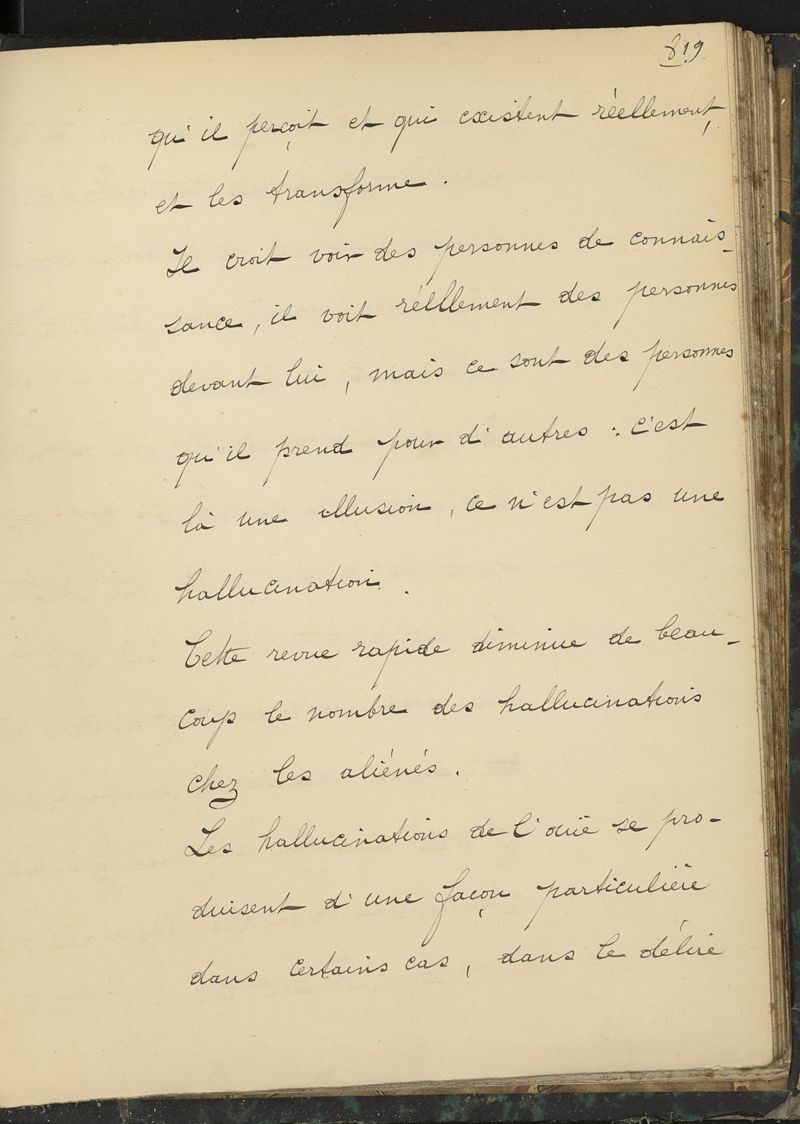 819
qu'il perçoit et qui existent réellement,
et les transforme.
Il croit voir des personnes de connais-
sance, il voit rélllement des personnes
devant lui, mais ce sont des personnes
qu'il prend pour d'autres : c'est
là une illusion, ce n'est pas une
hallucination.
Cette revue rapide diminue de beau-
coup le nombre des hallucinations
chez les aliénés.
Les hallucinations de l'ouïe se pro-
duisent d'une façon particulière
dans certains cas, dans le délire